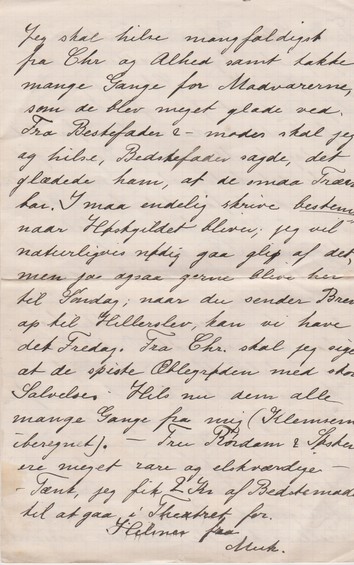 Jeg skal hilse mangfoldigst
fra Chr og Alhed samt takke
mange Gange for Madvarerne,
som de blev meget glade ved.
Fra Bestefader & - moder skal jeg
og hilse, Bedstefader sagde, det
glædede ham, at de smaa Træer
bar. I maa endelig skrive bestemt
naar Høstgildet bliver; jeg vil
naturligvis nødig gaa glip af det,
men jeg ogsaa gerne blive her
til Søndag; naar du sender Brev
op til Hillerslev, kan vi have
det Fredag. Fra Chr. skal jeg sige
at de spiste Oblegrøden med stor
Salvelse. Hils nu dem alle
mange Gange fra mig (Klemsem
iberegnet). — Fru Rørdam & Søster
ere meget rare og elskværdige —
- Tænk, jeg fik 2 Kr af Bedstemoder
til at gaa i Theatret for.
Hilsner fra
Muk.